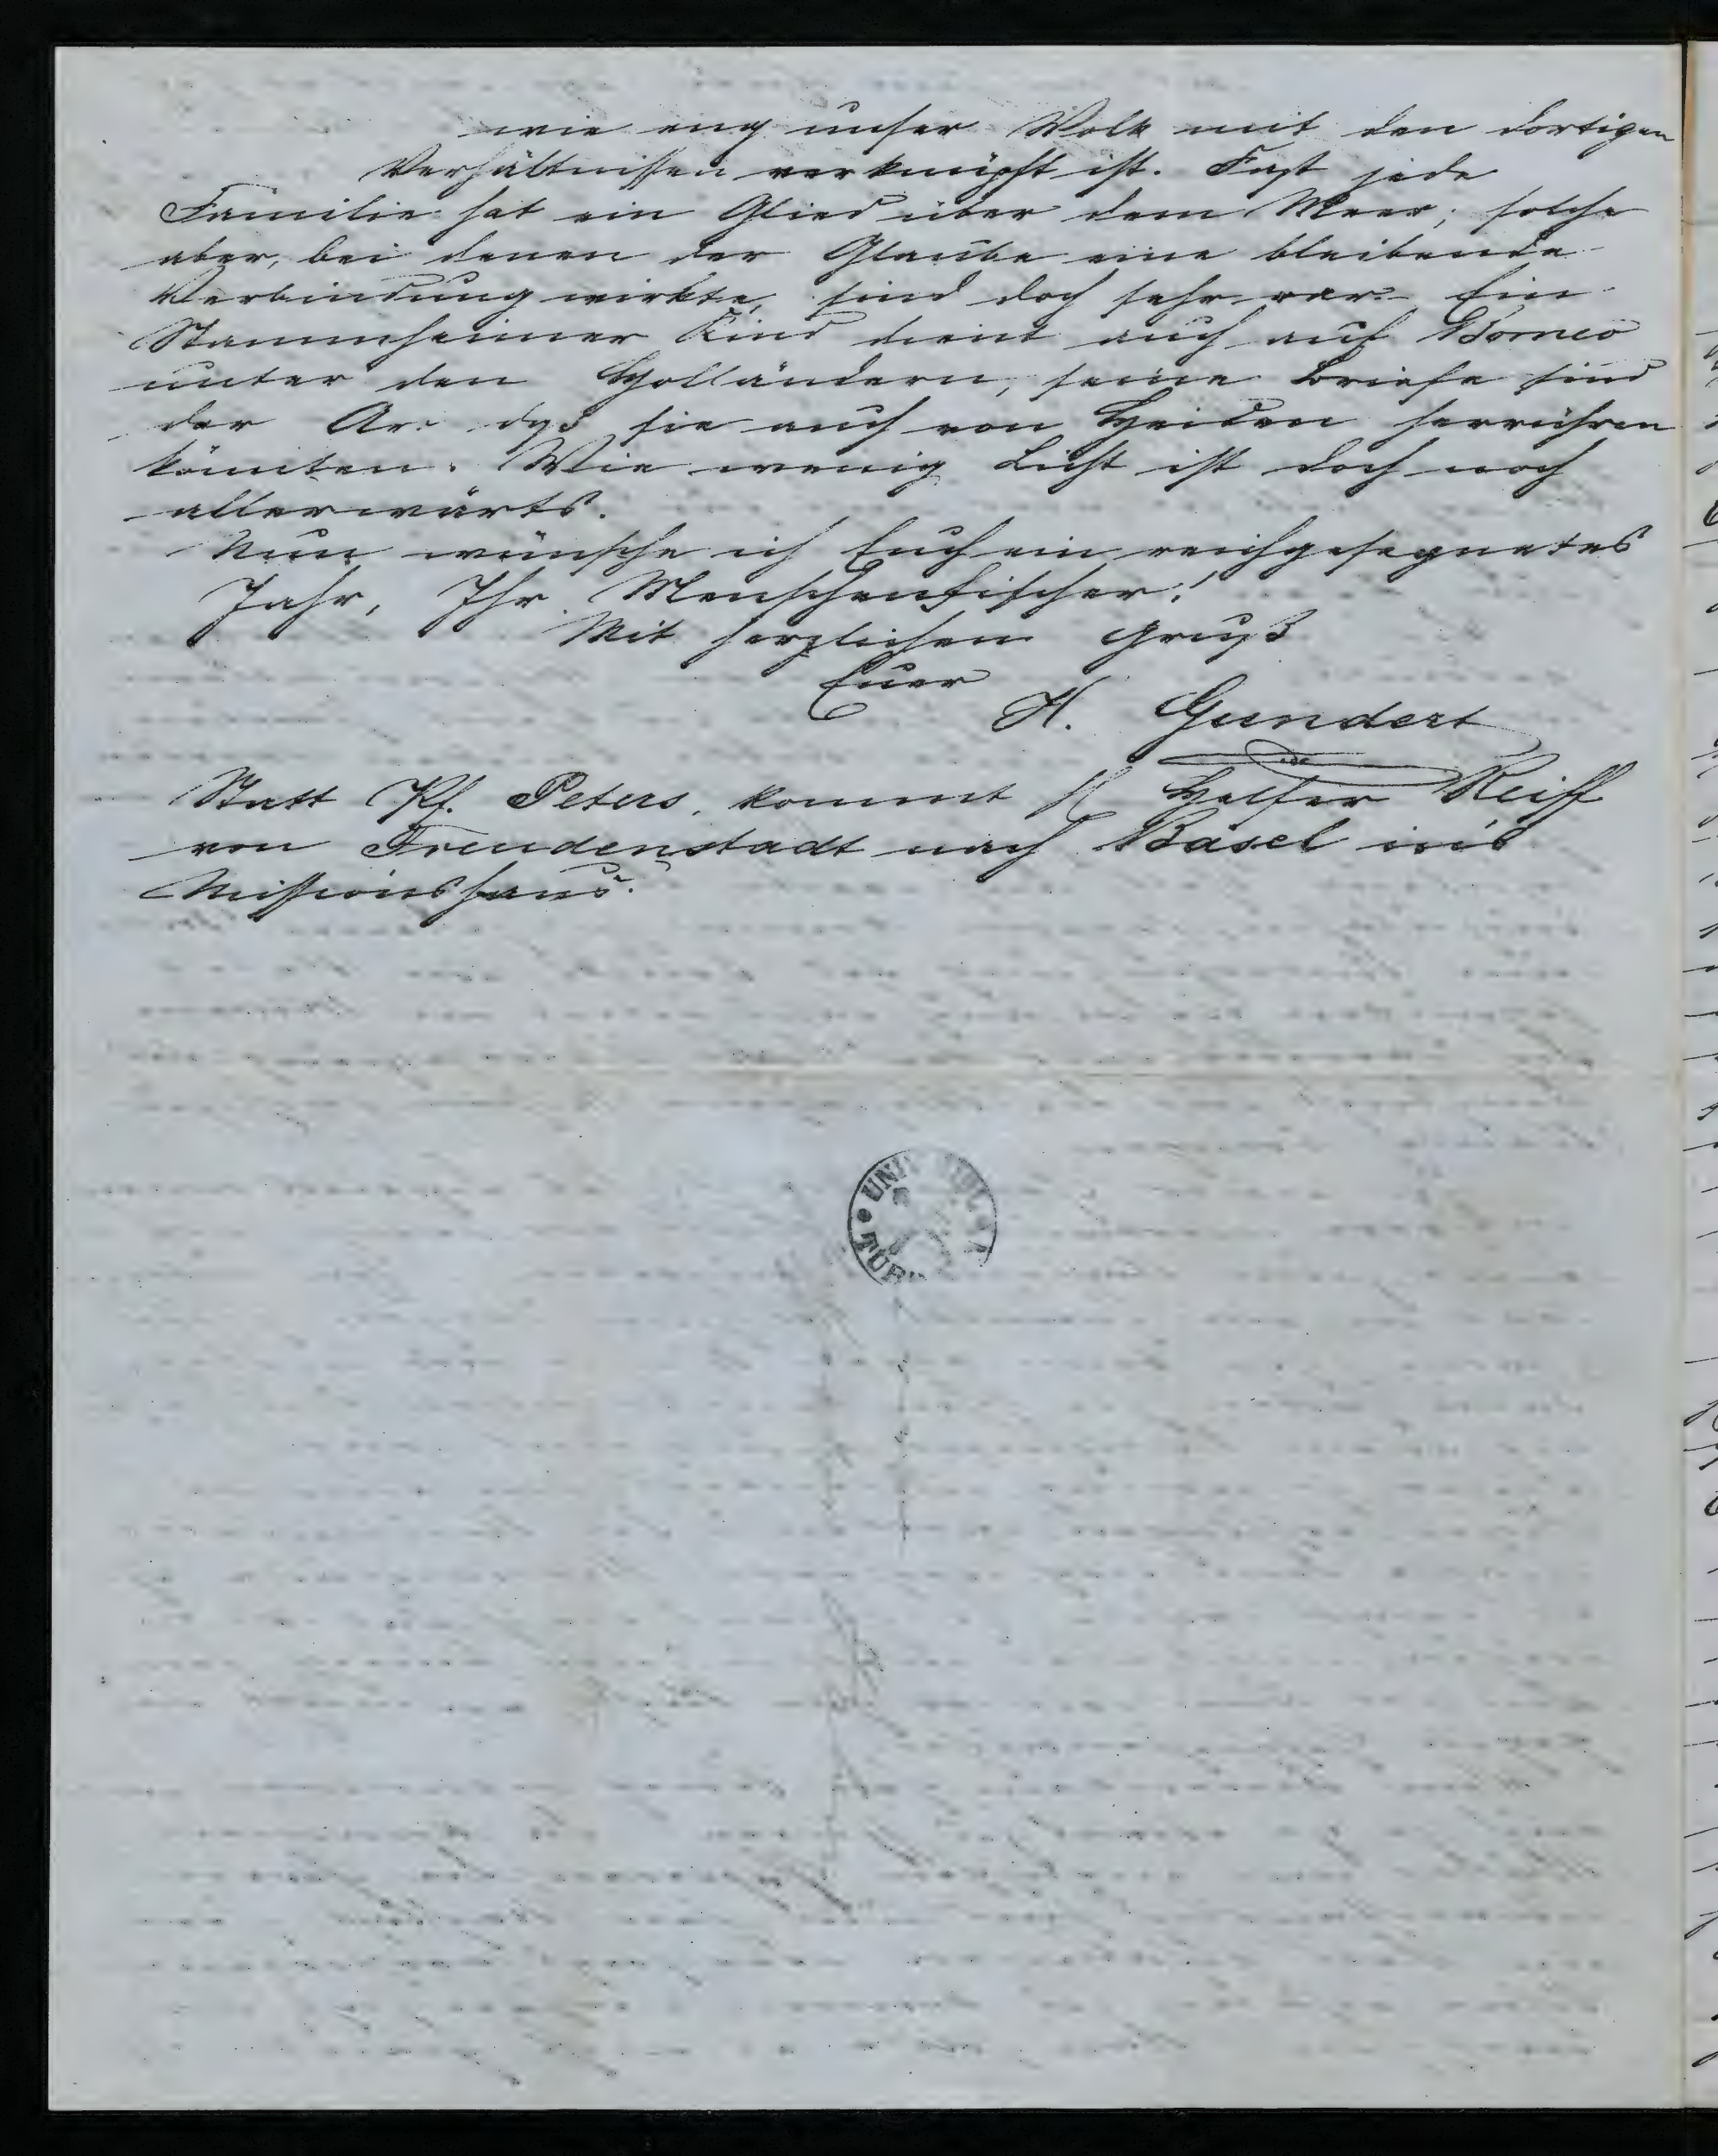 wie eng unser Volk mit den dortigen
Verhältnissen verknüpft ist. Fast jede
Familie hat ein Glied über dem Meer; solche
aber, bei denen der Glaube eine bleibende
Verbindung wirkte, sind doch sehr rar. Ein
Stammheimer Kind dient auch auf Borneo
unter den Holländern, seine Briefe sind
der Art daß sie auch von Heiden herrühren
könnten. Wie wenig Licht ist doch noch
allerwärts.
Nun wünsche ich Euch ein reichgesegnetes
Jahr, Ihr Menschenfischer!
Mit herzlichem Gruß
Euer
H. Gundert
Statt Pf. Peters, kommt Helfer Reiff
von Freudenstadt nach Basel in's
Missionshaus.
UNI
TÜB